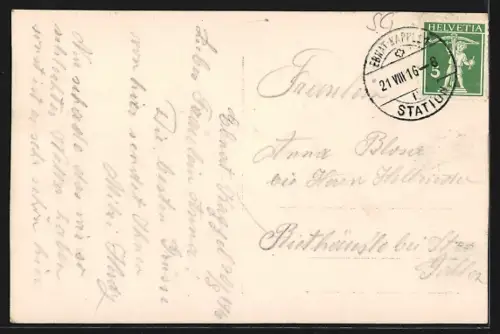 SG
HELVETIA
5
EBNAT-KAPPEL
21 VIII 16 - 8
STATION
Fräulein
Anna Bloser
bei Herrn
Riethäusle bei St.
Gallen
Ebnat Kappel
Liebes Fräulein Anna
Die besten Grüsse
von hier sendet Ihnen
Nur schade das wir so
schlechtes Wetter haben
sonst ist es sehr schön hier